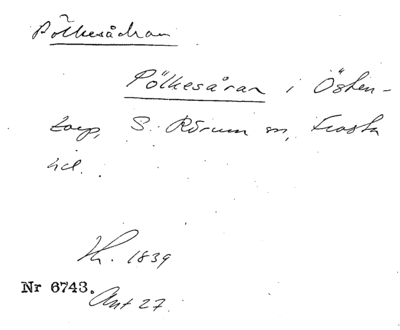 Pölkesådran
Pölkesåran i Östen-
torp, S. Rörum sn, Frosta
hd.
Kh. 1839
Nr 6743.
Ant 27.